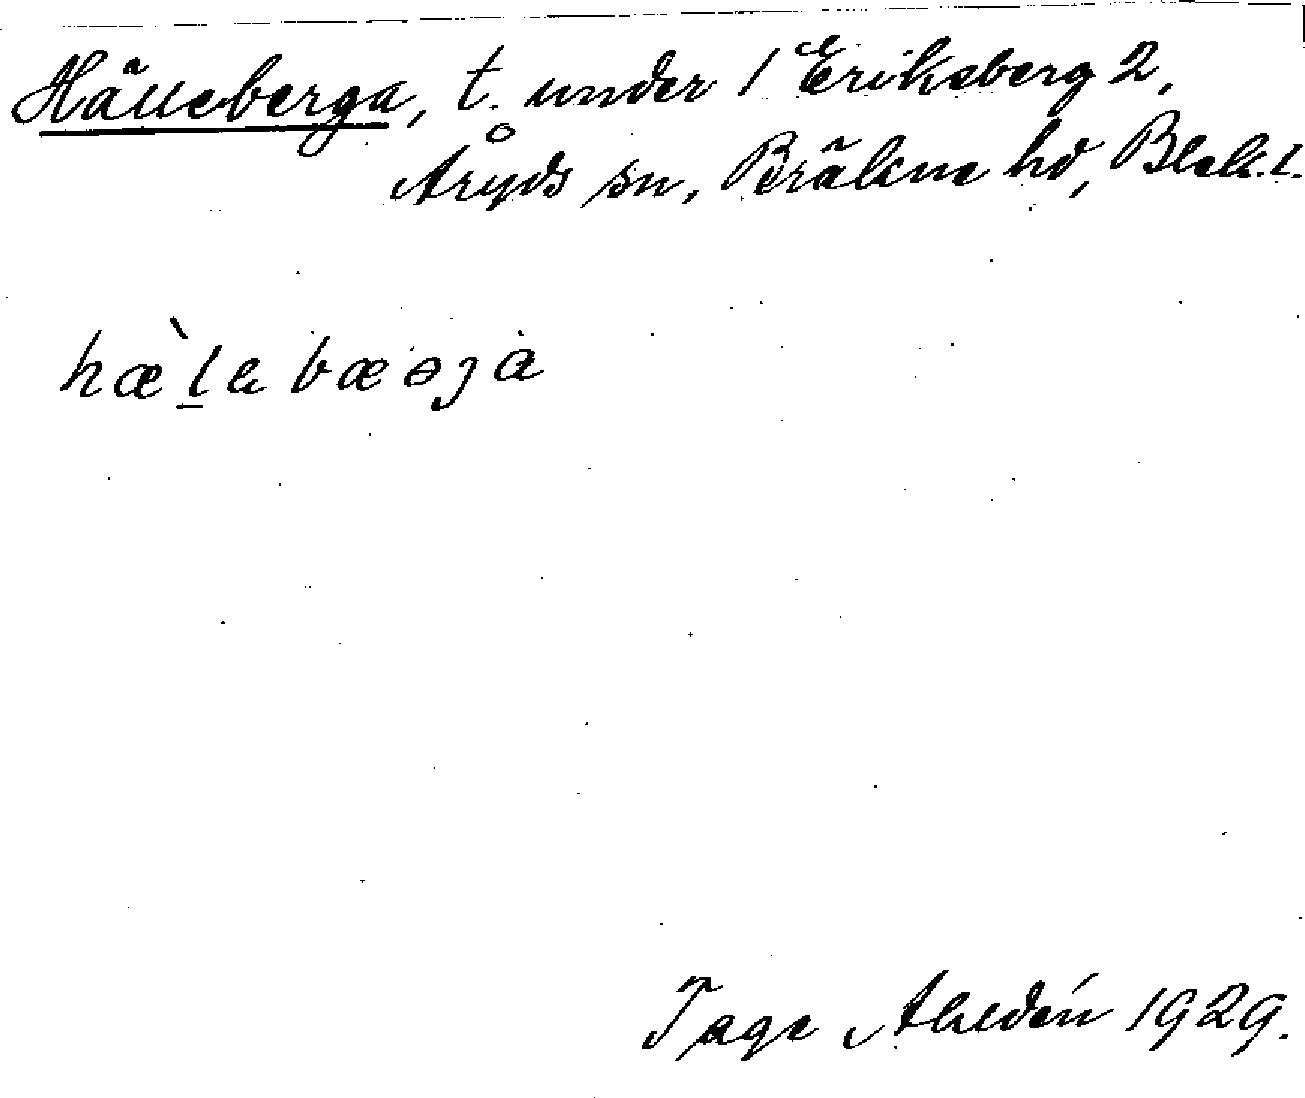 Hälleberga, t. under 1 Eriksberg 2,
Åryds sn, Bräkne hd, Blek. l.
hæ̀l̲a bæəɟa
Tage Ahldén 1929.